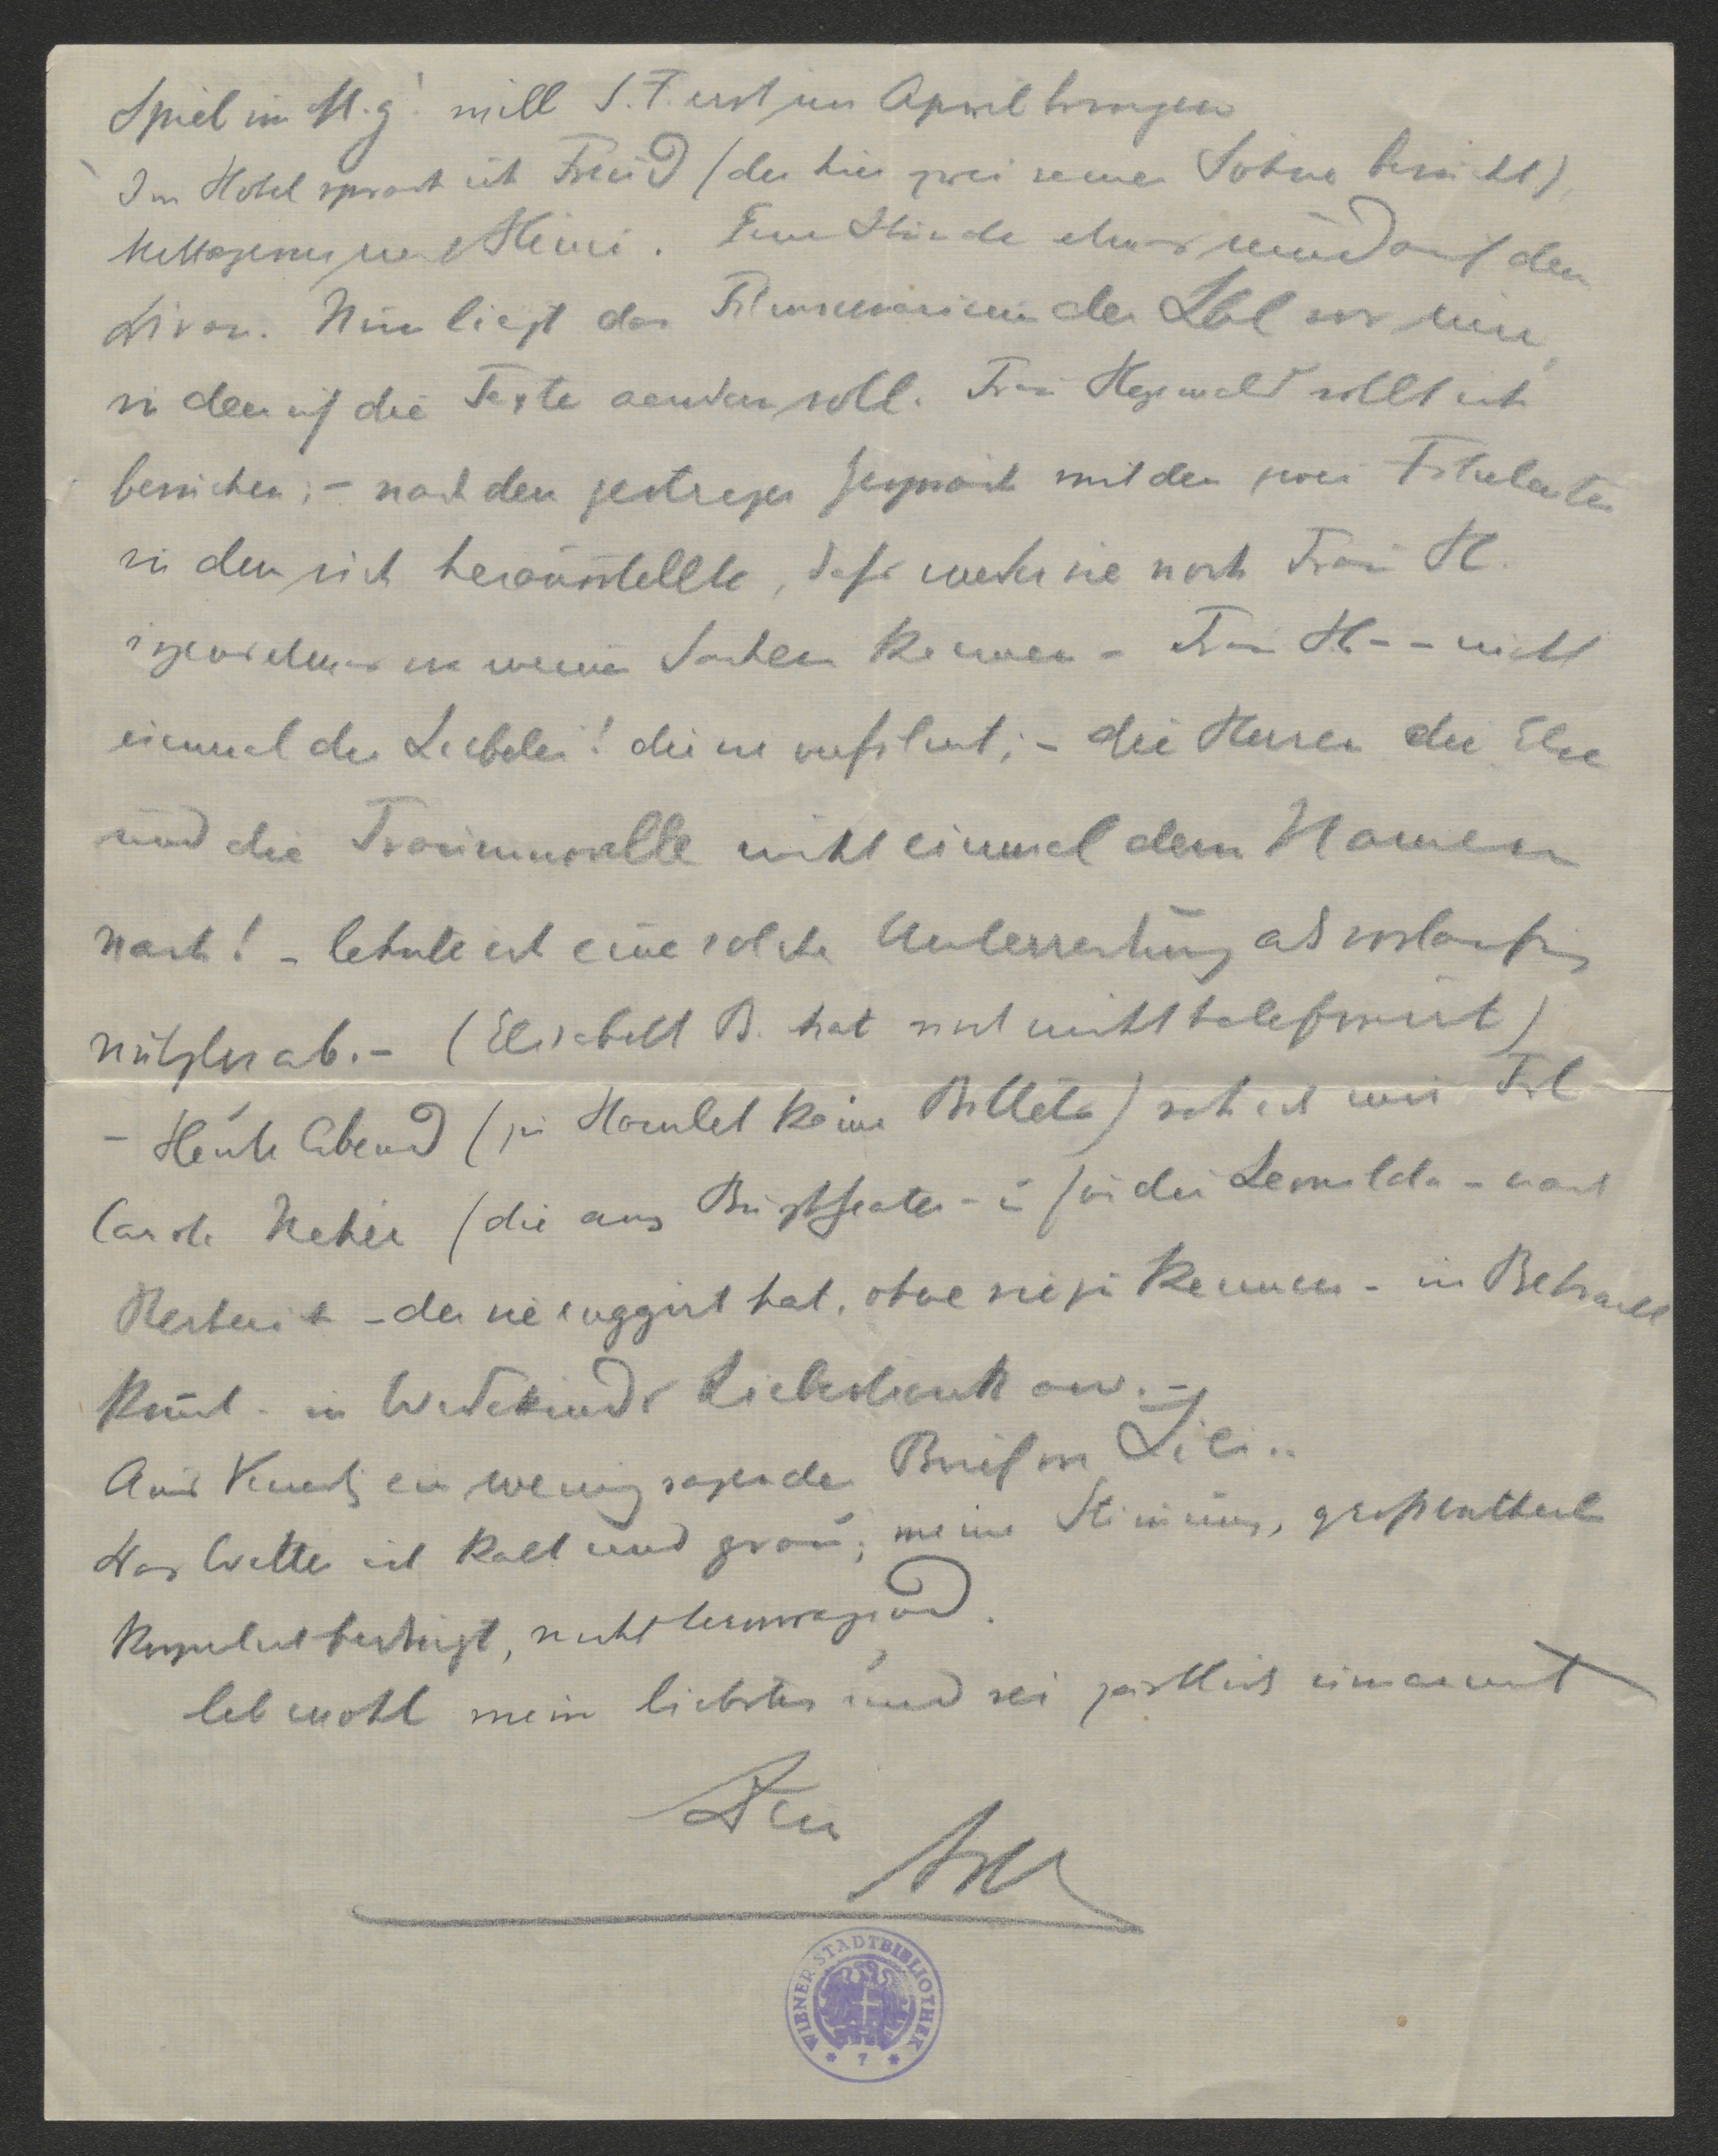 Spiel im M.g! will S. F. erst im April bringen
Im Hotel sprach ich Freud (der hier zwei seiner Söhne besucht),
Mittagessen mit Heini. Eine Stunde etwas müd auf dem
Divan. Nun liegt das Filmscenarium der Lbl vor mir,
zu dem ich die Texte aendern soll. Frau Hegewald sollt ich
besuchen; – nach dem gestrigen Gespräch mit den zwei Filmleuten
in dem sich herausstellte, dass weder sie noch Frau H.
irgend etwas von meinen Sachen kennen – Frau H – – nicht
einmal die Liebelei! die sie verfilmt; – die Herren die Else
und die Traumnovelle nicht einmal dem Namen
nach! – lehnte ich eine solche Unterredung als vorläufig
nutzlos ab. – (Elisabeth B. hat noch nicht telefonirt)
– Heute Abend (zu Hamlet keine Billets) seh ich mir Frl
Carola Neher (die ans Burgtheater – u für die Leonilda – nach
– der sie suggerirt hat, ohne sie zu kennen – in Betracht
kommt – in Wedekinds Liebestrank an. –
Aus Venedig ein wenig sagender Brief von Lili..
Das Wetter ist kalt und grau; meine Stimmung, großentheils
, nicht hervorragend.
leb wohl mein liebstes und sei zärtlich umarmt
Dein
Arth
WIENER STADTBIBLIOTHEK
* 7 *